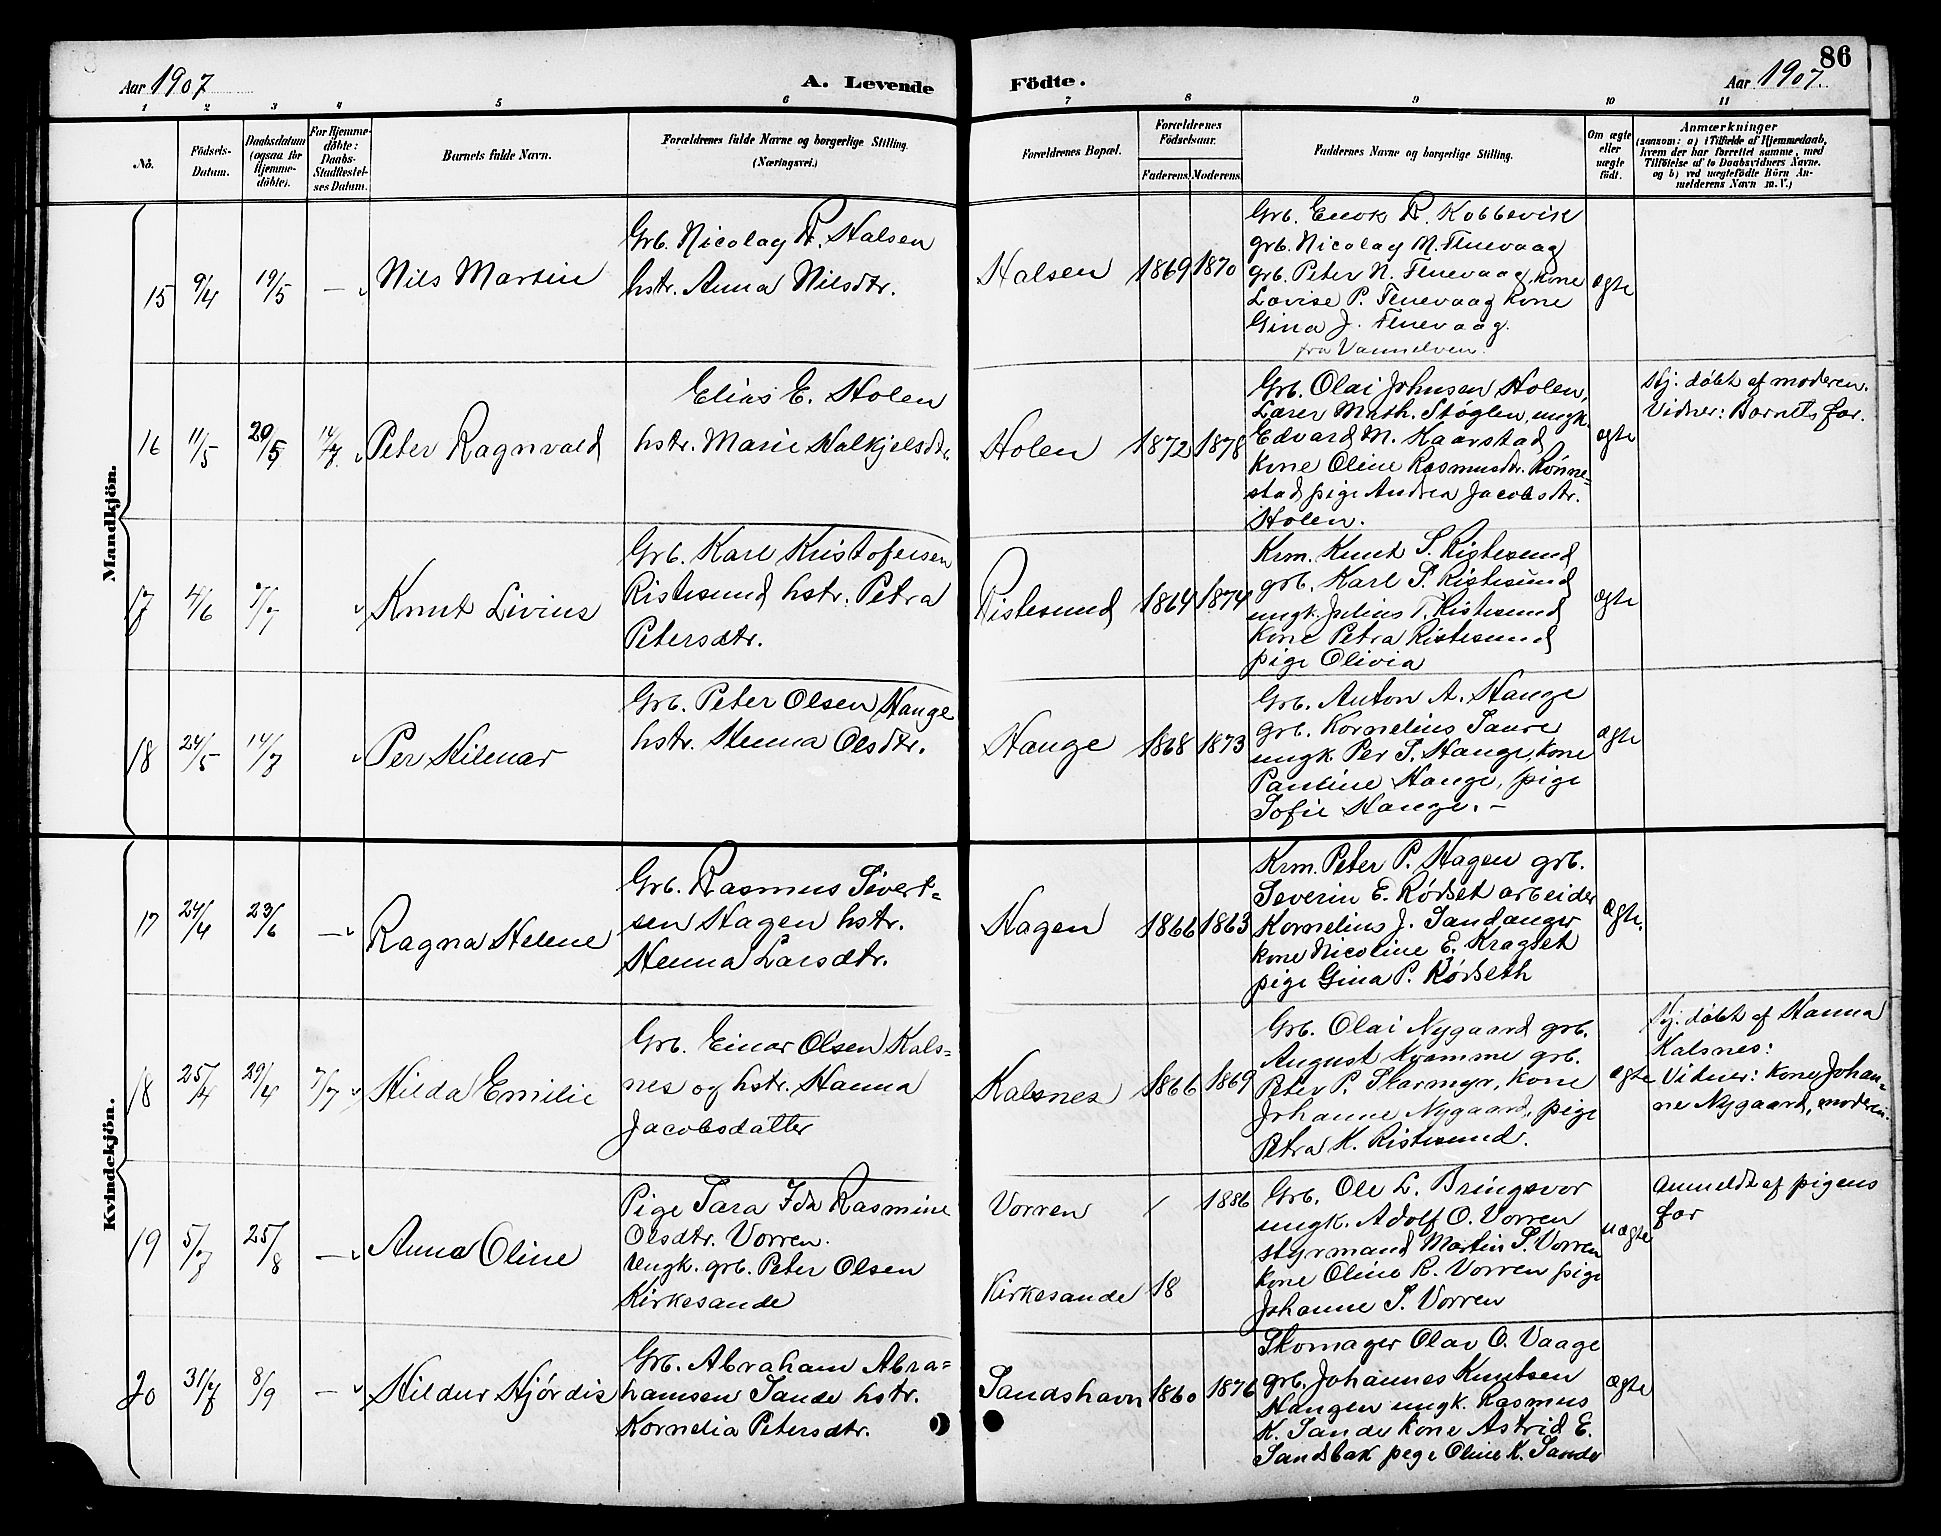 86
Aar 1907
A. Levende
Födte.
Aar 1907.
1 2 3 4 5 6 7 8 9 10 11
No.
Födsels-
Datum.
Daabsdatum
(ogsaa for
Hjemme-
döbte).
For Hjemme-
döbte:
Daabs-
Stadfestel-
ses Datum.
Barnets fulde Navn.
Forældrenes fulde Navne og borgerlige Stilling.
(Næringsvei.)
Forældrenes Bopæl.
Forældrenes
Födselsaar.
Faderens. Moderens.
Faddernes Navne og borgerlige Stilling.
Om ægte
eller
uægte
födt.
Anmærkninger
(saasom: a) i Tilfælde af Hjemmedaab,
hvem der har forrettet samme, med
Tilföielse af to Daabsvidners Navne.
og b) ved uægtefödte Börn An-
melderens Navn m. V.)
Mandkjön.
15 9/4 19/5 — Nils Martin
Grb. Nicolay R. Halsen
hstr. Anna Nilsdtr.
Halsen 1869 1870
Grb. Enok R. Kobbevik
grb. Nicolay N. Tenevaag
grb. Peter N. Tenevaag, kone
Lovise P. Tenevaag kone
Gina J. Tenevaag.
fra Vannelven.
ægte
16 11/5 20/5 14/7 Peter Ragnvald
Elias E. Holen
hstr. Marie Halkjelsdtr.
Holen 1872 1878
Grb. Olai Johnsen Holen,
Lærer Math. Støylen, ungk.
Edvard M. Kaarstad,
kone Oline Rasmusdtr. Rönne-
stad pige Andrea Jacobsdtr.
Holen.
ægte
Hj. döbt af moderen.
Vidner: Barnets far.
17 4/6 7/7 Knut Livius
Grb. Karl Kristofersen
Ristesund hstr. Petra
Petersdtr.
Ristesund 1864 1874
Krm. Knut S. Ristesund
grb. Karl S. Ristesund
ungk. Julius T. Ristesund
kone Petra Ristesund
pige Olivia
ægte
18 24/5 14/7 Per Hilmar
Grb. Peter Olsen Hauge
hstr. Hanna Olsdtr.
Hauge 1868 1873
Grb. Anton A. Hauge
grb. Kornelius Saure
ungk. Per S. Hauge, kone
Pauline Hauge, pige
Sofie Hauge. –
ægte
Kvindekjön.
17 24/4 23/6 — Ragna Helene
Grb. Rasmus Sivert-
sen Hagen hstr.
Hanna Larsdtr.
Hagen 1866 1863
Krm. Peter P. Hagen grb.
Severin E. Rödset arbeider
Kornelius J. Sandanger
kone Nicoline E. Kragset
pige Gina P. Rödseth
ægte.
18 25/4 29/4 7/7 Hilda Emilie
Grb. Einar Olsen Kals-
nes og hstr. Hanna
Jacobsdatter
Kalsnes 1866 1869
Grb. Olai Nygaard grb.
August Kvamme grb.
Peter P. Skarmyr, kone
Johanne Nygaard, pige
Petra K. Ristesund.
ægte
Hj. döbt af Hanna
Kalsnes:
Vidner: kone Johan-
ne Nygaard, moderen.
19 5/7 25/8 — Anna Oline
Pige Sara Ida Rasmine
Olsdtr. Vorren.
Ungk. grb. Peter Olsen
Kirkesande
Vorren / 1886
Kirkesande 18
Grb. Ole L. Bringsvor
ungk. Adolf O. Vorren
styrmand Martin S. Vorren
kone Oline R. Vorren pige
Johanne S. Vorren
uægte
Anmeldt af pigens
far
20 31/7 8/9 — Hildur Hjördis
Grb. Abraham Abra-
hamsen Sande hstr.
Kornelia Petersdtr.
Sandshavn 1860 1876
Skomager Olav O. Vaage
grb. Johannes Knutsen
Haugen ungk. Rasmus
K. Sande kone Astrid E.
Sandsbak pige Oline K. Sande
ægte